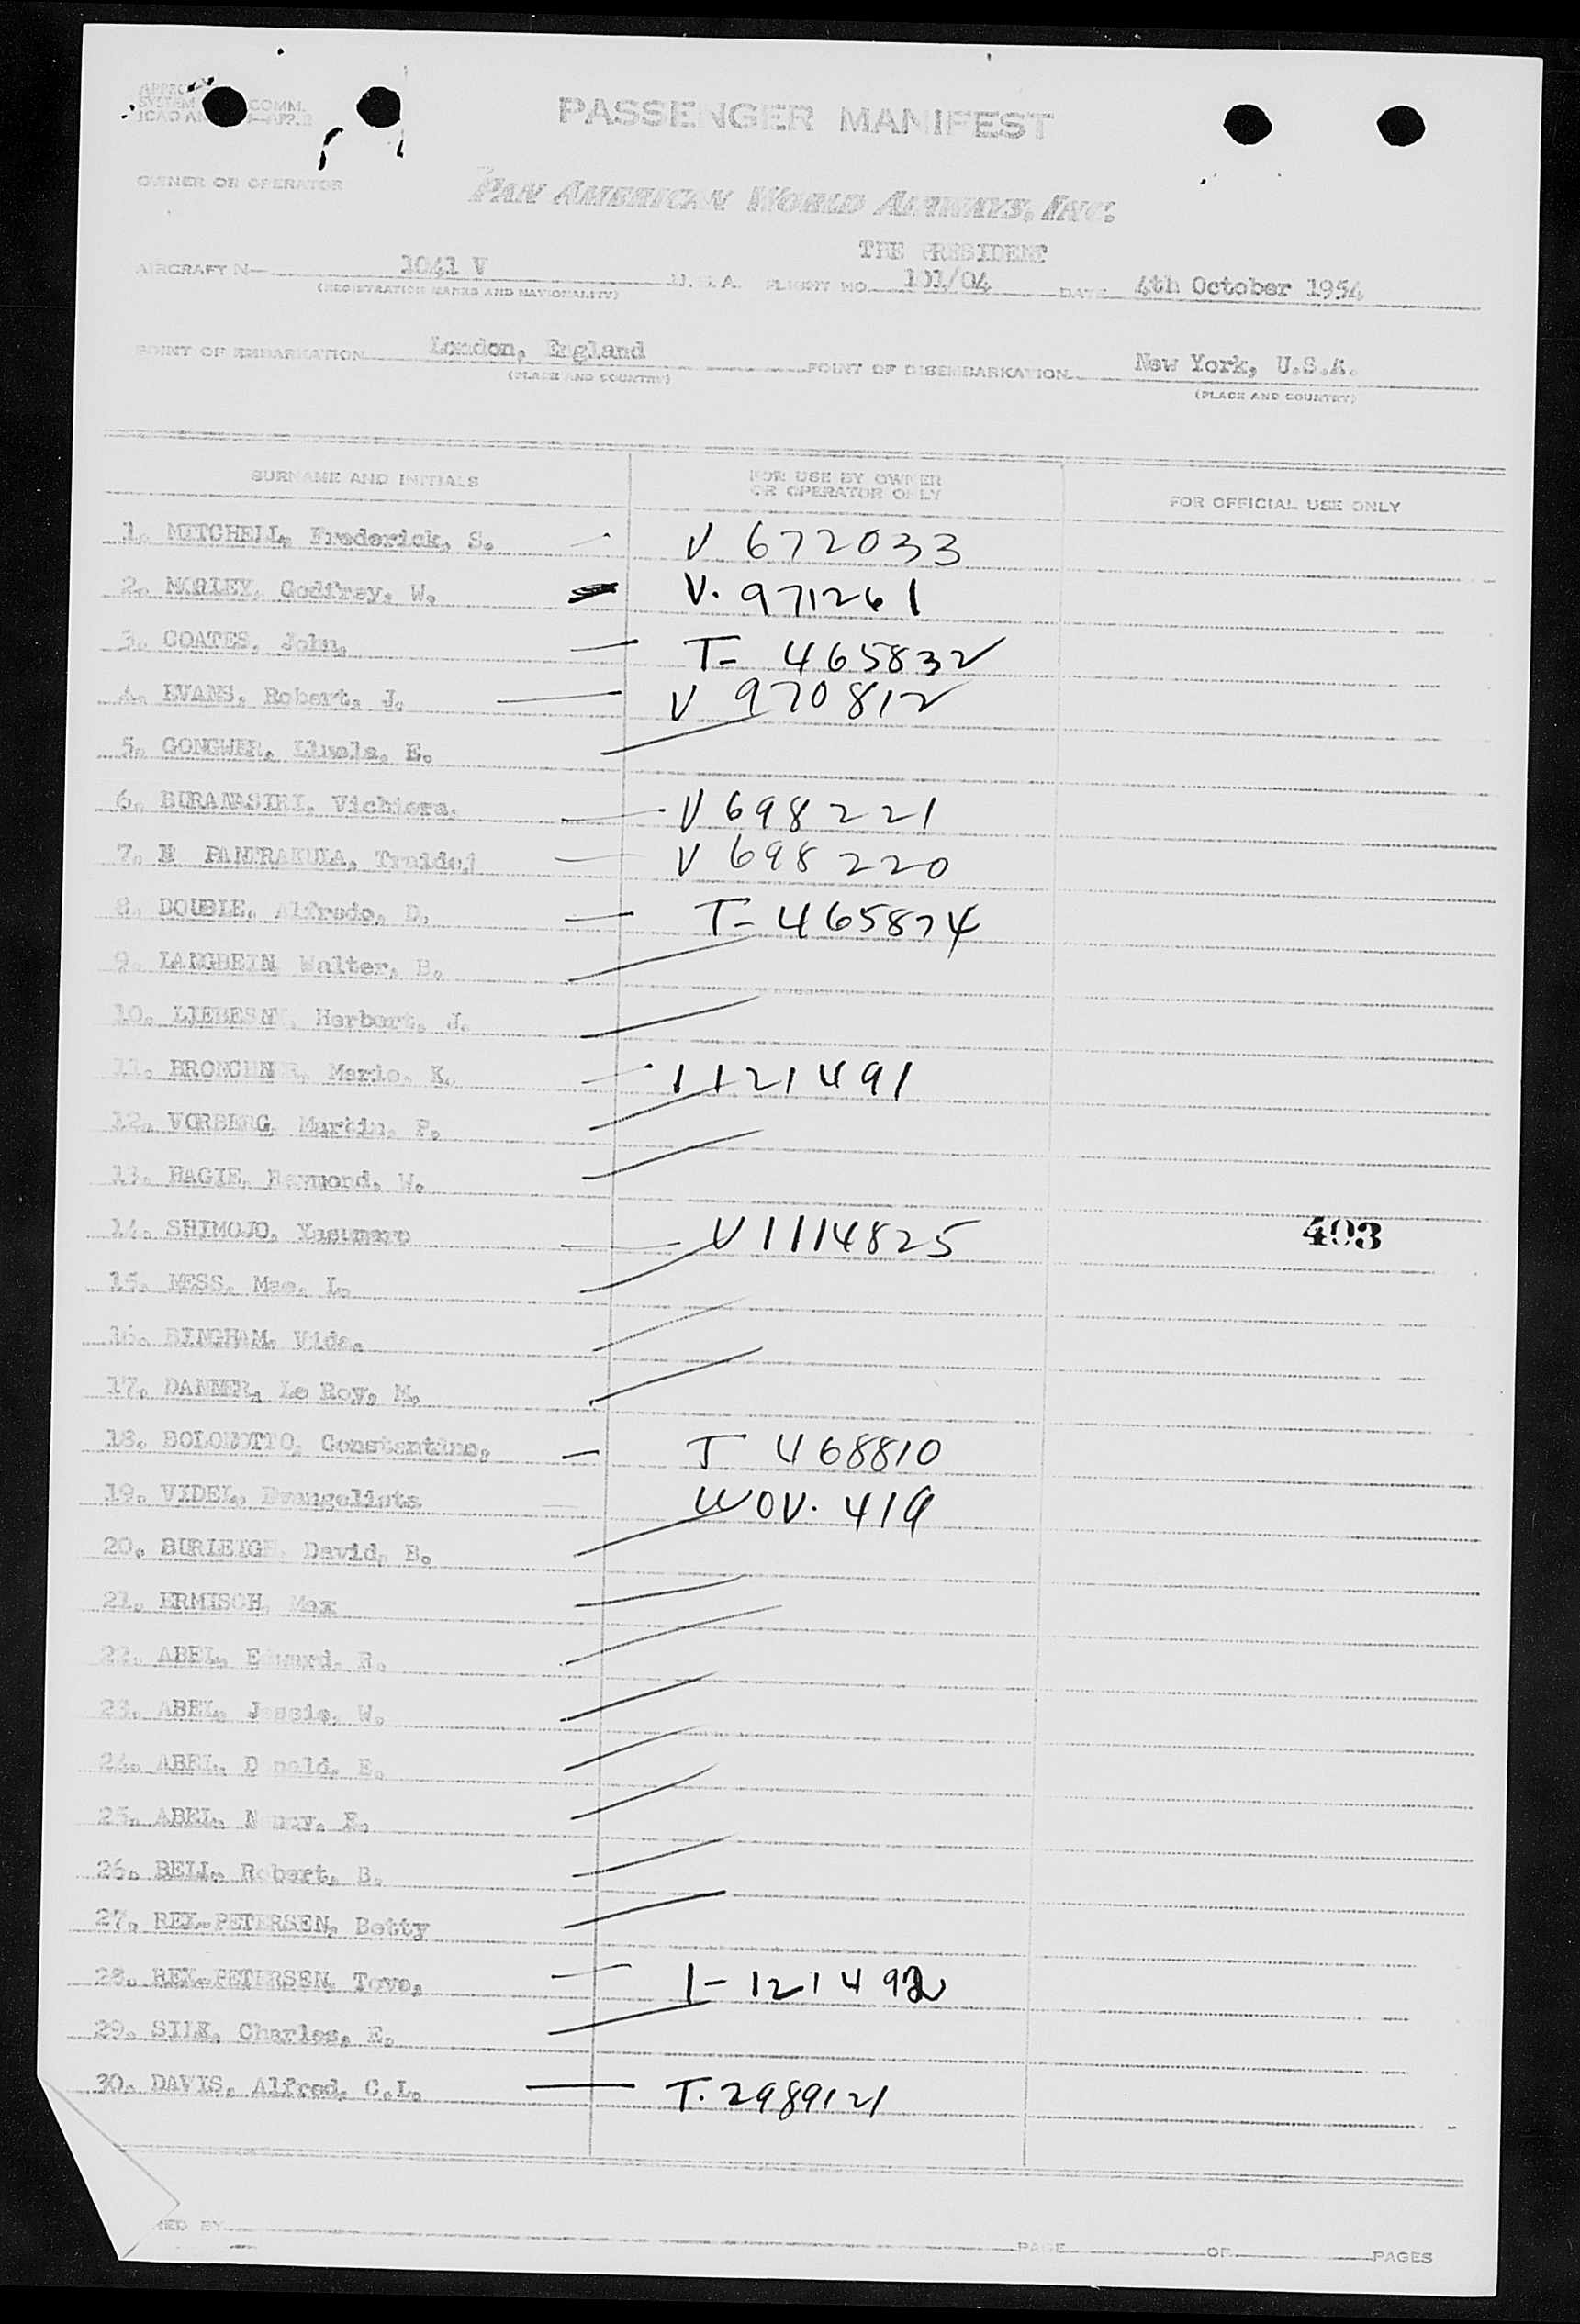 PASSENGER MANIFEST
OWNER OR OPERATOR
PAN AMERICAN WORLD AIRWAYS, INC.
THE PRESIDENT
AIRCRAFT N— 1041 V U.S.A. FLIGHT NO. 101/04 DATE 4th October 1954
(REGISTRATION MARKS AND NATIONALITY)
POINT OF EMBARKATION London, England POINT OF DISEMBARKATION New York, U.S.A.
(PLACE AND COUNTRY) (PLACE AND COUNTRY)
SURNAME AND INITIALS FOR USE BY OWNER OR OPERATOR ONLY FOR OFFICIAL USE ONLY
1. MITCHELL, Frederick, S. V 672033
2. MORLEY, Godfrey, W. V. 971261
3. COATES, John. T- 465832
4. EVANS, Robert, J. V 970812
5. GONGWER, E.
6. BURANASIRI, V 698221
7. V 698220
8. DOUBLE, Alfredo, D. T- 465874
9. LANGBEIN, Walter, B.
10. LIEBESNY, Herbert, J.
11. K. 1121491
12. VORBERG, Martin, P.
13. HAGIE, Raymond, W.
14. SHIMOJO, Yasumaro V1114825 403
15. NESS, Mae, L.
16. BINGHAM, Vida.
17. DANNER, Le Roy, M.
18. Constantino, T 468810
19. VIDEL, Evangelista WOV. 419
20. BURLEIGH, David, B.
21. ERMISCH, Max
22. ABEL, Edward, R.
23. ABEL, Jessie, W.
24. ABEL, Donald, E.
25. ABEL, Nancy, E.
26. BELL, Robert, B.
27. REX-PETERSEN, Betty
28. REX-PETERSEN, Tove, 1-121492
29. SILK, Charles, E.
30. DAVIS, Alfred, C.L. T. 2989121
PAGE OF PAGES